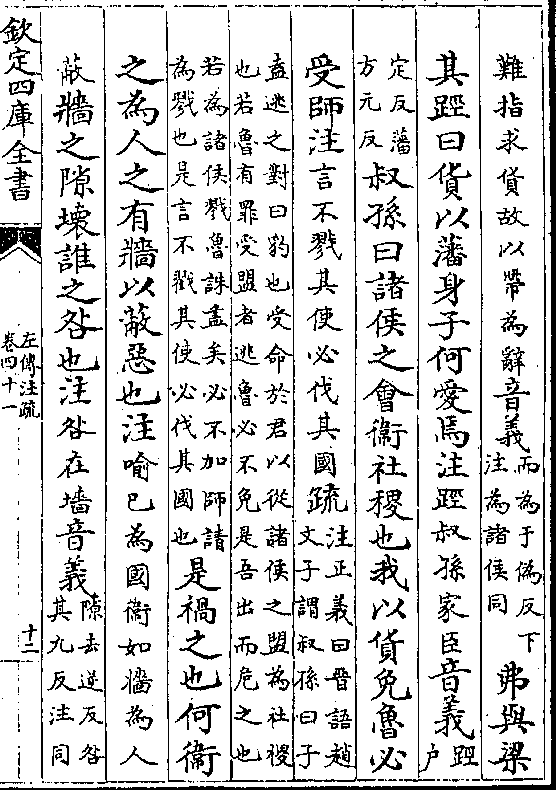 難指求貨故以帶為辭音義而為于偽反下注為諸侯同弗與梁
其踁曰貨以藩身子何愛焉注踁叔孫家臣音義踁戶
定反藩方元反叔孫曰諸侯之會衞社稷也我以貨免魯必
受師注言不戮其使必伐其國疏注正義曰晉語趙文子謂叔孫曰子
盍逃之對曰豹也受命於君以從諸侯之盟為社稷也若魯有罪受盟者逃魯必不免是吾出而危之也
若為諸侯戮魯誅盡矣必不加師請為戮也是言不戮其使必伐其國也是禍之也何衞
之為人之有牆以蔽惡也注喻已為國衞如牆為人
蔽牆之隙壞誰之咎也注咎在墻音義隙去逆反咎其九反注同
欽定四庫全書
左傳注疏
卷四十一
十二